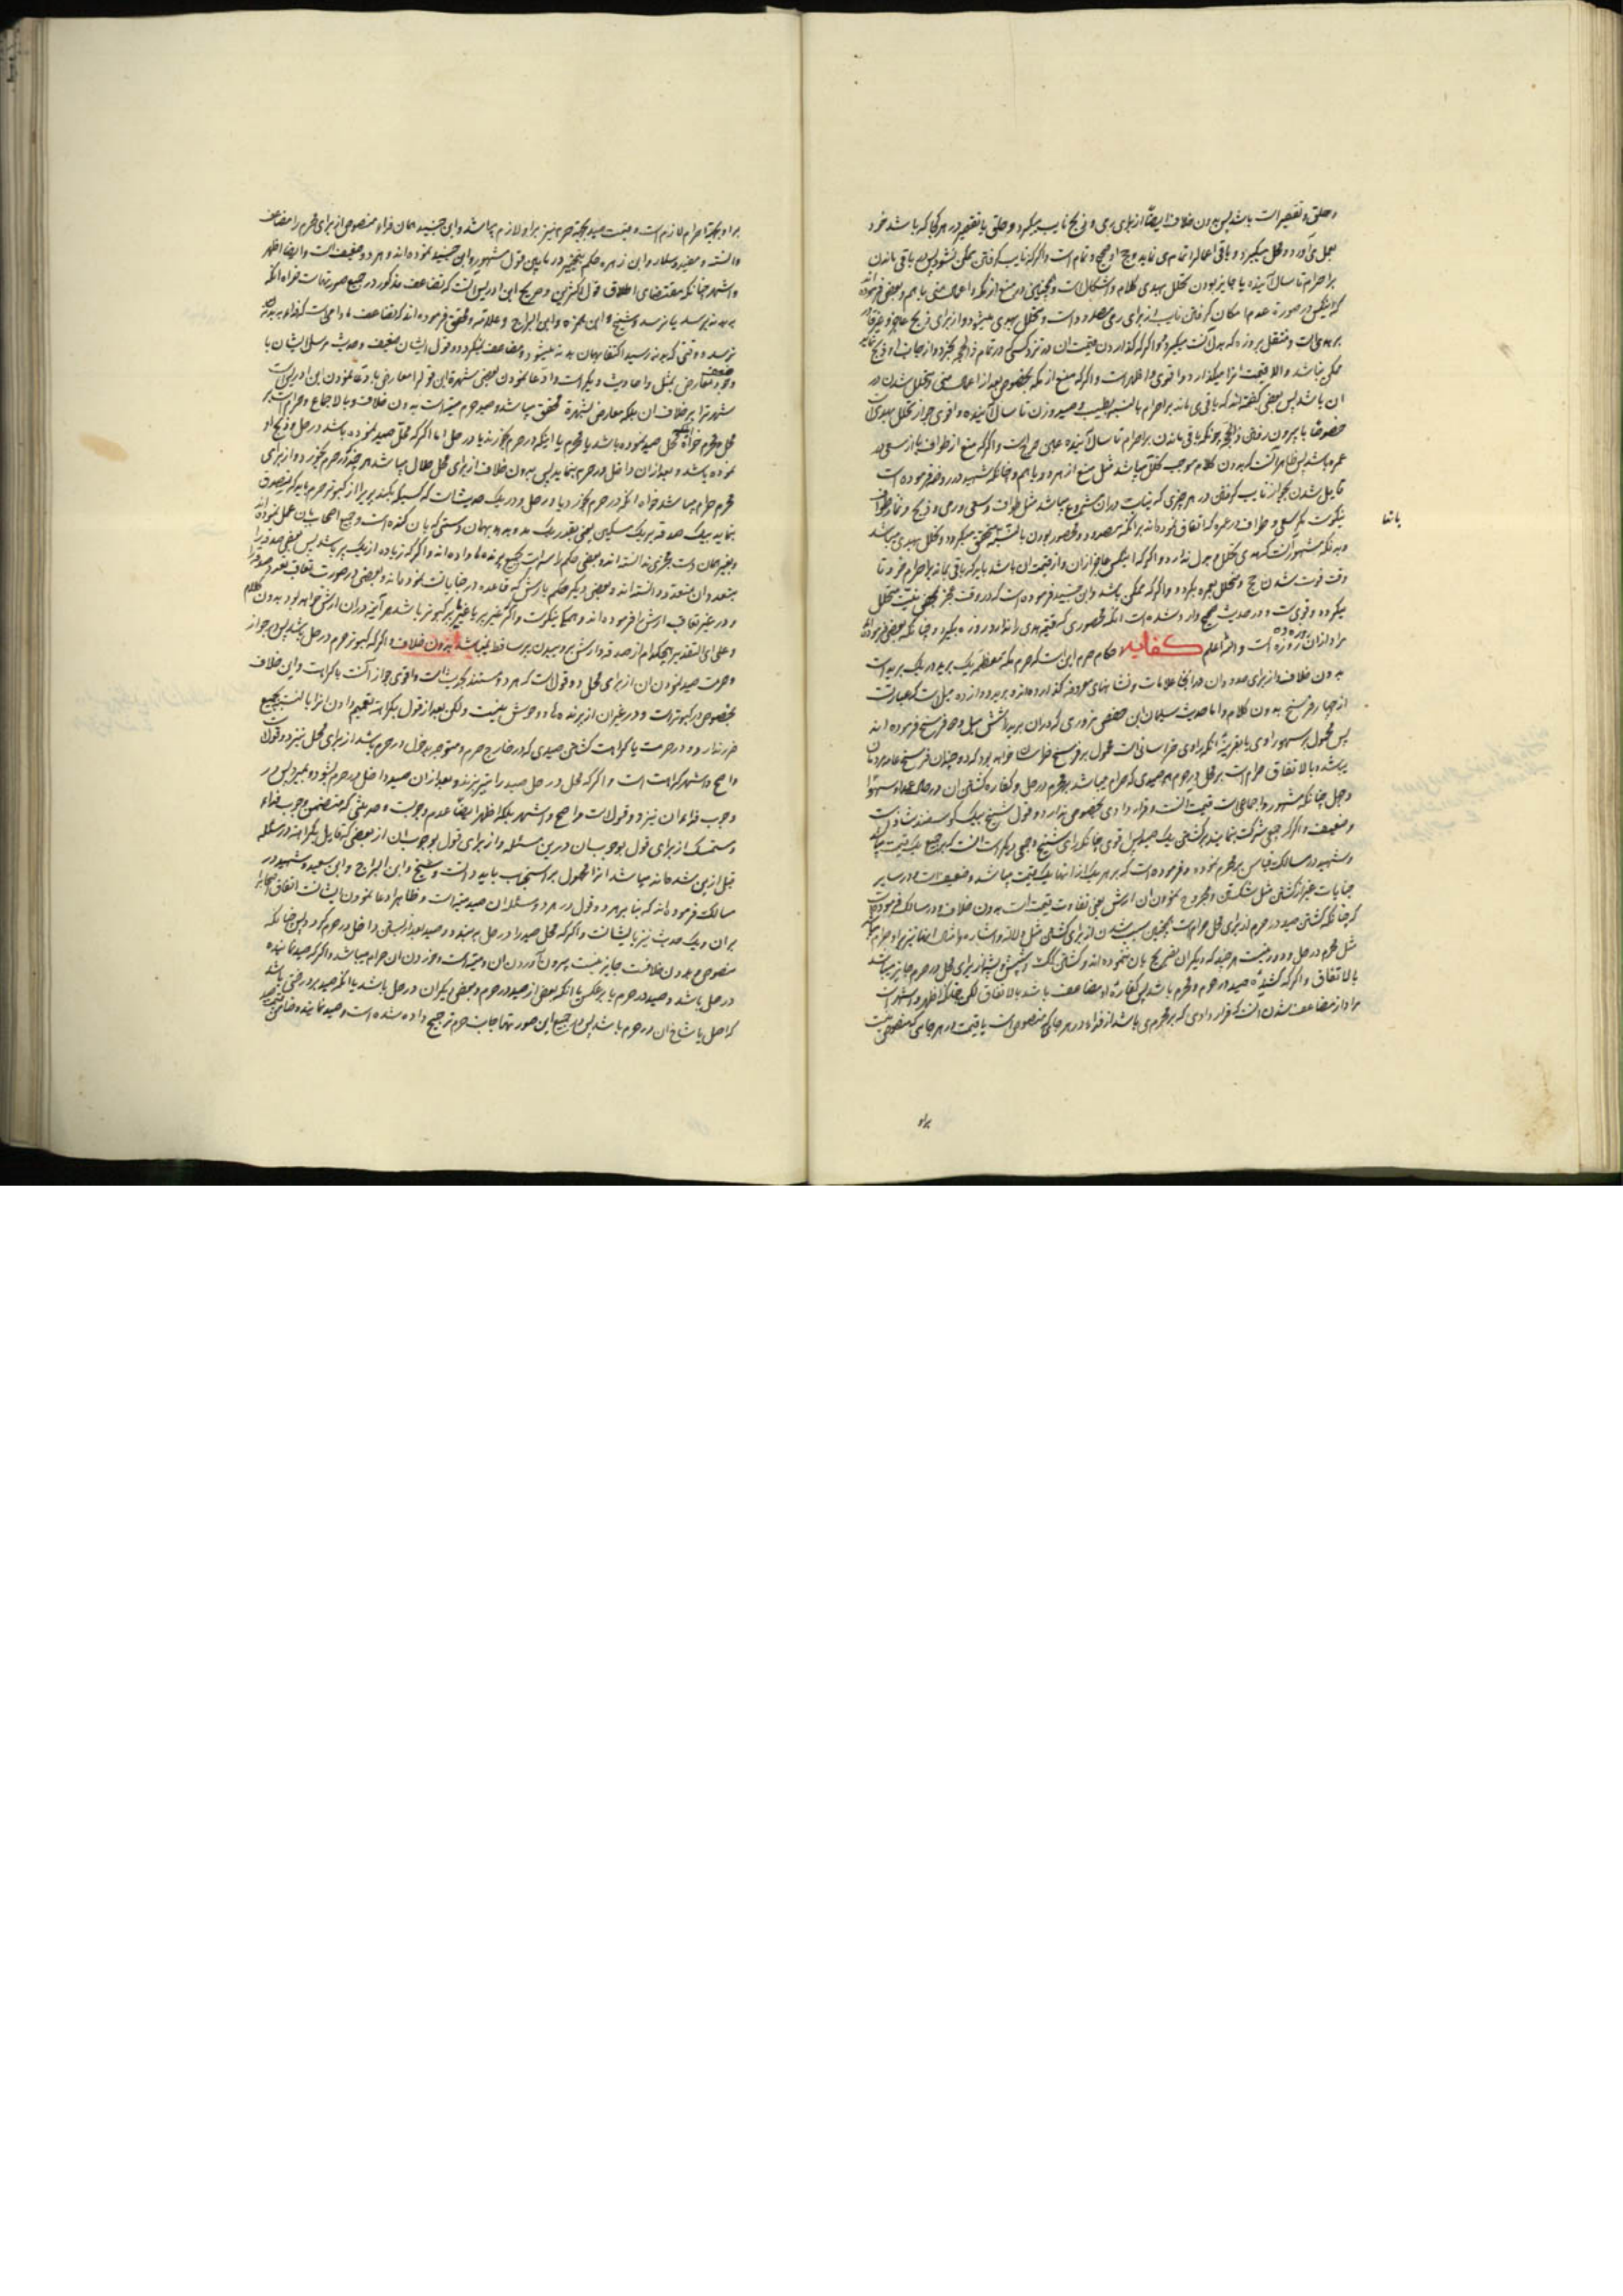 و حلق و تقصیر است باشد پس بدون خلاف ایضاً از برای رمی و ذبح نایب میگیرد و حلق یا تقصیر در هر کجا که باشد خود
بعمل می‌آورد و محل میگردد و باقی اعمال را تمام می نماید و حج او صحیح و تمام است و اگر که نایب گرفتن ممکن نشود پس باقی ماندن
بر احرام تا سال آینده یا جایز بودن تحلل بهدی کلام و اشکال است و همچنین در منع از مکه و اعمال منی با هم و بعضی فرموده‌اند
ممکن نباشد و الا قیمت آنرا میگذارد و اقوی و اظهر است و اگر که منع از مکه بخصوص بعد از اعمال منی و تحلل شدن در
آن باشد پس بعضی گفته‌اند که باقی می ماند بر احرام بالنسبه بطیب و صید و زن تا سال آینده و اقوی جواز تحلل بهدی است
خصوصاً با بیرون رفتن ذیحجه چونکه باقی ماندن بر احرام تا سال آینده حرج است و اگر که منع از طواف یا از سعی در
عمره باشد پس ظاهر آنست که بدون کلام موجب تحلل میباشد مثل منع از هر دو با هم و چنانکه شهید در روضه فرموده است
قایل شدن بجواز نایب گرفتن در هر چیزی که نیابت در آن مشروع میباشد مثل طواف و سعی و رمی و ذبح و نماز طواف
باشا
نیکوست
و بدانکه مشهور آنست که هدی تحلل بدل ندارد و اگر که اینکس عاجز از آن و از قیمت آن باشد باید که باقی بماند بر احرام خود تا
وقت فوت شدن حج و تحلل بعمره بگردد و اگر که ممکن باشد و ابن جنید فرموده است که در وقت عجز بمحض نیت تحلل
میگردد و قوی است و در حدیث صحیح وارد شده است آنکه محصوری که قیمت هدی را ندارد روزه میگیرد و چنانکه بعضی فرموده‌اند
مراد از آن ده روزه است و الله اعلم کفایه احکام حرم این است که حرم مکه معظمه یک برید در یک برید است
بدون خلاف و از برای حدود آن در آنجا علامات و نشانهای معروفه گذارده‌اند و برید دوازده میل است که عبارت
از چهار فرسخ بدون کلام و اما حدیث سلیمان ابن حفص مروزی که در آن برید را شش میل و دو فرسخ فرموده اند
پس محمول بر سهو راوی یا بقرینه آنکه راوی خراسانی است محمول بر فرسخ خراسان خواهد بود که دو چندان فرسخ عامه مردمان
میباشد و بالاتفاق حرام است بر محل در حرم هر صیدی که حرام میباشد بر محرم در حل و کفاره کشتن آن در حال عمد و سهو
و جهل چنانکه مشهور و اجماعی است قیمت است و قرار دادی بخصوص ندارد و قول شیخ بیک گوسفند شاذ است
و ضعیف و اگر که جمعی شرکت بنمایند بر کشتن یک صید پس اقوی چنانکه رأی شیخ و جمعی دیگر است آنست که بر جمیع یک قیمت میباشد
و شهید در مسالک قیاس بر محرم نموده و فرموده است که بر هر یک از آنها یک قیمت میباشد و ضعیف است و در سایر
جنایات غیر از کشتن مثل شکستن و مجروح نمودن ارش یعنی تفاوت قیمت است بدون خلاف و در مسالک فرموده است
که چنانکه کشتن صید در حرم از برای محل حرام است همچنین سبب شدن از برای کشتن مثل دلاله و اشاره
مثل محرم در حل و دور نیست هر چند که دیگران تصریح بآن ننموده‌اند و کشتن کک و شپش و پشه از برای محل در حرم جایز میباشد
بالاتفاق و اگر که کشنده صید در حرم و محرم باشد پس کفاره او مضاعف باشد بالاتفاق لکن چنانکه اظهر و اشهر است
مراد از مضاعف شدن آنست که قرار دادی که بر محرم می باشد از فداء در هر جائی که منصوص است یا قیمت در هر جائی که منصوص نیست
براو
براو بجهة احرام لازم است و قیمت صید بجهة حرم نیز بر او لازم میباشد و ابن جنید همان فداء منصوص از برای محرم را مضاعف
دانسته و مفید و سلار و ابن زهره حکم بتخییر در مابین قول مشهور و ابن جنید نموده‌اند و هر دو ضعیف است و ایضاً اظهر
و اشهر چنانکه مقتضای اطلاق قول اکثرین و صریح ابن ادریس است که تضاعف مذکور در جمیع صورتهاست خواه آنکه
به بدنه برسد یا نرسد و شیخ و ابن حمزه و ابن البراج و علامه و محقق فرموده‌اند که تضاعف مادامی است که فداء به بدنه
نرسد و وقتی که بدنه رسید اکتفا بهمان بدنه میشود و مضاعف نمیگردد و قول ایشان ضعیف و حدیث مرسل ایشان با
وجود ضعف معارض بمثل و احادیث دیگر است و ادعا نمودن بعضی شهرة این قول را معارض با ادعا نمودن ابن ادریس است
شهرت را بر خلاف آن بلکه معارض بشهرة محقق میباشد و صید حرم میته است بدون خلاف و بالاجماع و حرام است بر
محل و محرم خواه آنکه محل صید نموده باشد یا محرم یا اینکه در حرم بخورند یا در حل اما اگر که محل صید نموده باشد در حل و ذبح او
نموده باشد و بعد از آن داخل در حرم بنماید پس بدون خلاف از برای محل حلال میباشد هر چند که در حرم بخورد و از برای
محرم حرام میباشد خواه آنکه در حرم بخورد یا در حل و در یک حدیث است که کسیکه بکند پری را از کبوتر حرم باید که تصدق
بنماید بیک صدقه بر یک مسکین یعنی بقدر یک مد و بدهد بهمان دستی که با آن کنده است و جمیع اصحاب بآن عمل نموده‌اند
و بغیر همان دست مجزی ندانسته اند و بعضی حکم را سرایت بجمیع پرنده ها داده‌اند و اگر که زیاده از یک پر باشد پس بعضی صدقه را
بتعدد آن متعدد دانسته اند و بعضی دیگر حکم بارش که قاعده در جنایات است نموده‌اند و بعضی در صورت تعاقب تعدد صدقه را
و در غیر تعاقب ارش را فرموده‌اند و همگی نیکوست و اگر غیر پر یا غیر پر کبوتر باشد هر آینه در آن ارش خواهد بود بدون کلام
و علی ای التقدیر هیچکدام از صدقه و ارش بروییدن پر ساقط نمیباشد بدون خلاف و اگر که کبوتر حرم در حل باشد پس در جواز
و حرمت صید نمودن آن از برای محل دو قول است که هر دو مستند بحدیث است و اقوی جواز آنست با کراهت و این خلاف
بخصوص در کبوتر است و در غیر آن از پرنده ها و وحوش نیست ولکن بعد از قول بکراهت تعمیم دادن آنرا بالنسبه بجمیع
ضرر ندارد و در حرمت یا کراهت کشتن صیدی که در خارج حرم و متوجه بدخول در حرم باشد از برای محل نیز دو قول است
واضح و اشهر کراهت است و اگر که محل در حل صید را تیر بزند و بعد از آن صید داخل در حرم بشود و بمیرد پس در
وجوب فداء آن نیز دو قول است واضح و اشهر بلکه اظهر ایضاً عدم وجوب است و حدیثی که متضمن وجوب فداء
و مستمسک از برای قول بوجوب آن درین مسئله و از برای قول بوجوب آن از بعضی که قایل بکراهت در مسئله
قبل ازین شده‌اند میباشد آنرا محمول بر استحباب باید دانست و شیخ و ابن البراج و ابن سعید و شهید در
مسالک فرموده‌اند که بنا بر هر دو قول در هر دو مسئله آن صید میته است و ظاهراً ادعا نمودن ایشانست اتفاق اصحاب را
بر آن و یک حدیث نیز با ایشانست و اگر که محل صید را در حل ببندد و صید بعد از بستن داخل در حرم گردد پس چنانکه
منصوص و بدون خلافست جایز نیست بیرون آوردن آن و میته است و خوردن آن حرام میباشد و اگر که صید نماینده
در حل باشد و صید در حرم یا بر عکس یا آنکه بعضی از صید در حرم و بعض دیگر آن در حل باشد یا آنکه صید بر درختی باشد
که اصل یا شاخ آن در حرم باشد پس در جمیع این صورتها جانب حرم ترجیح داده شده است و صید نماینده ضامن